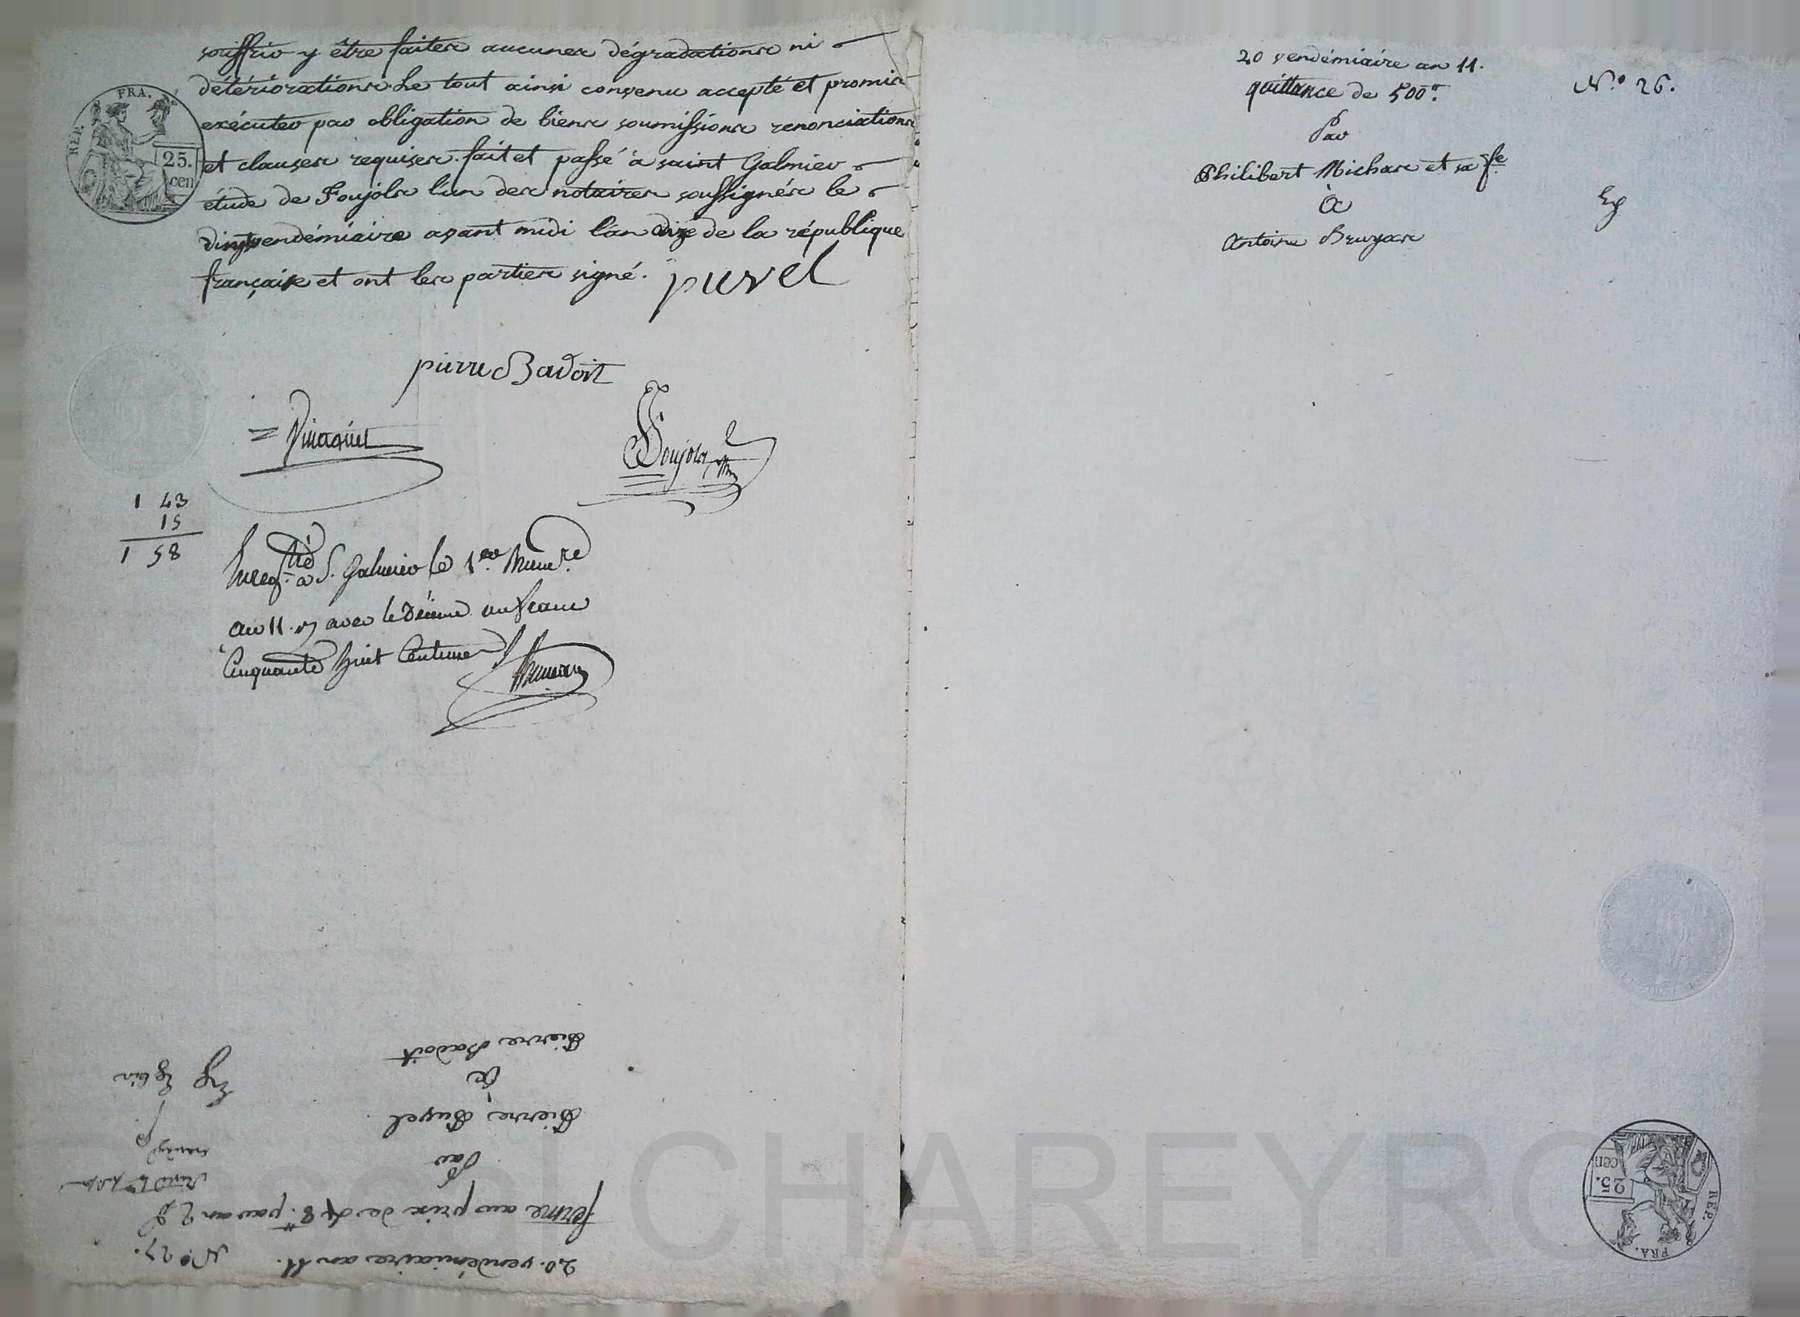 souffrir y être faites aucunes dégradations ni
détériorations. Le tout ainsi convenu accepté et promis
exécuter par obligation de biens soumissions renonciations
et clauses requises. fait et passé à saint Galmier
étude de Foujols l'un des notaires soussignés le
vingt vendémiaire avant midi l'an onze de la république
française et ont les parties signé. puvel
RÉP. FRA.
25.
cen
pierre Badoit
Vinaquet
Foujols
1 43
15
1 58
Enregtré à S. Galmier le 1er Brumre
an 11. avec le décime un franc
Cinquante huit Centimes
20. vendémiaire an 11. N.° 27.
ferme au prix de 48.tt par an
Par
Pierre Puvel
à
Pierre Badoit
20 vendémiaire an 11.
N.° 26.
quittance de 500tt.
Par
Philibert Michas et sa fe
à
Antoine Bruyas
RÉP. FRA.
25.
cen
Pascal CHAREYRO